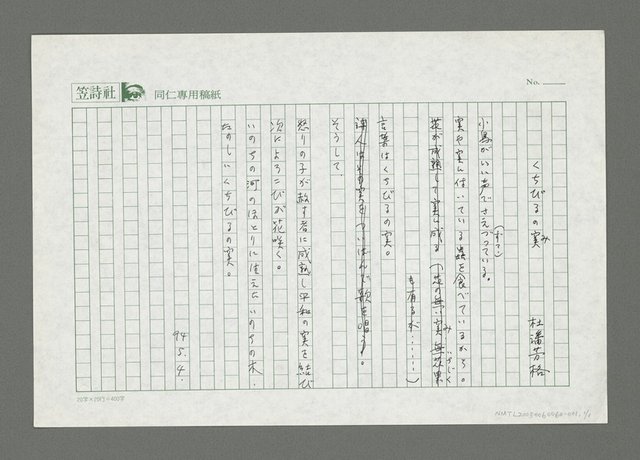 笠詩社
同仁專用稿紙
No.
くちびるの実
み
杜潘芳格
小鳥がいい声でさえづっている。
(ずつ)
実や実に住いている虫を食べているから。
花が成熟して実に成る(花の無い実 無花果
み
いちじく
も有るが……)
言葉はくちびるの実。
詩人はその実をついばんで歌を唱う。
そうして、
怒りの子が赦す者に成熟し平和の実を結び
次によろこびが花咲く。
いのちの河のほとりに生えた いのちの木、
たのしいくちびるの実。
94.5.4.
20字×20行=400字